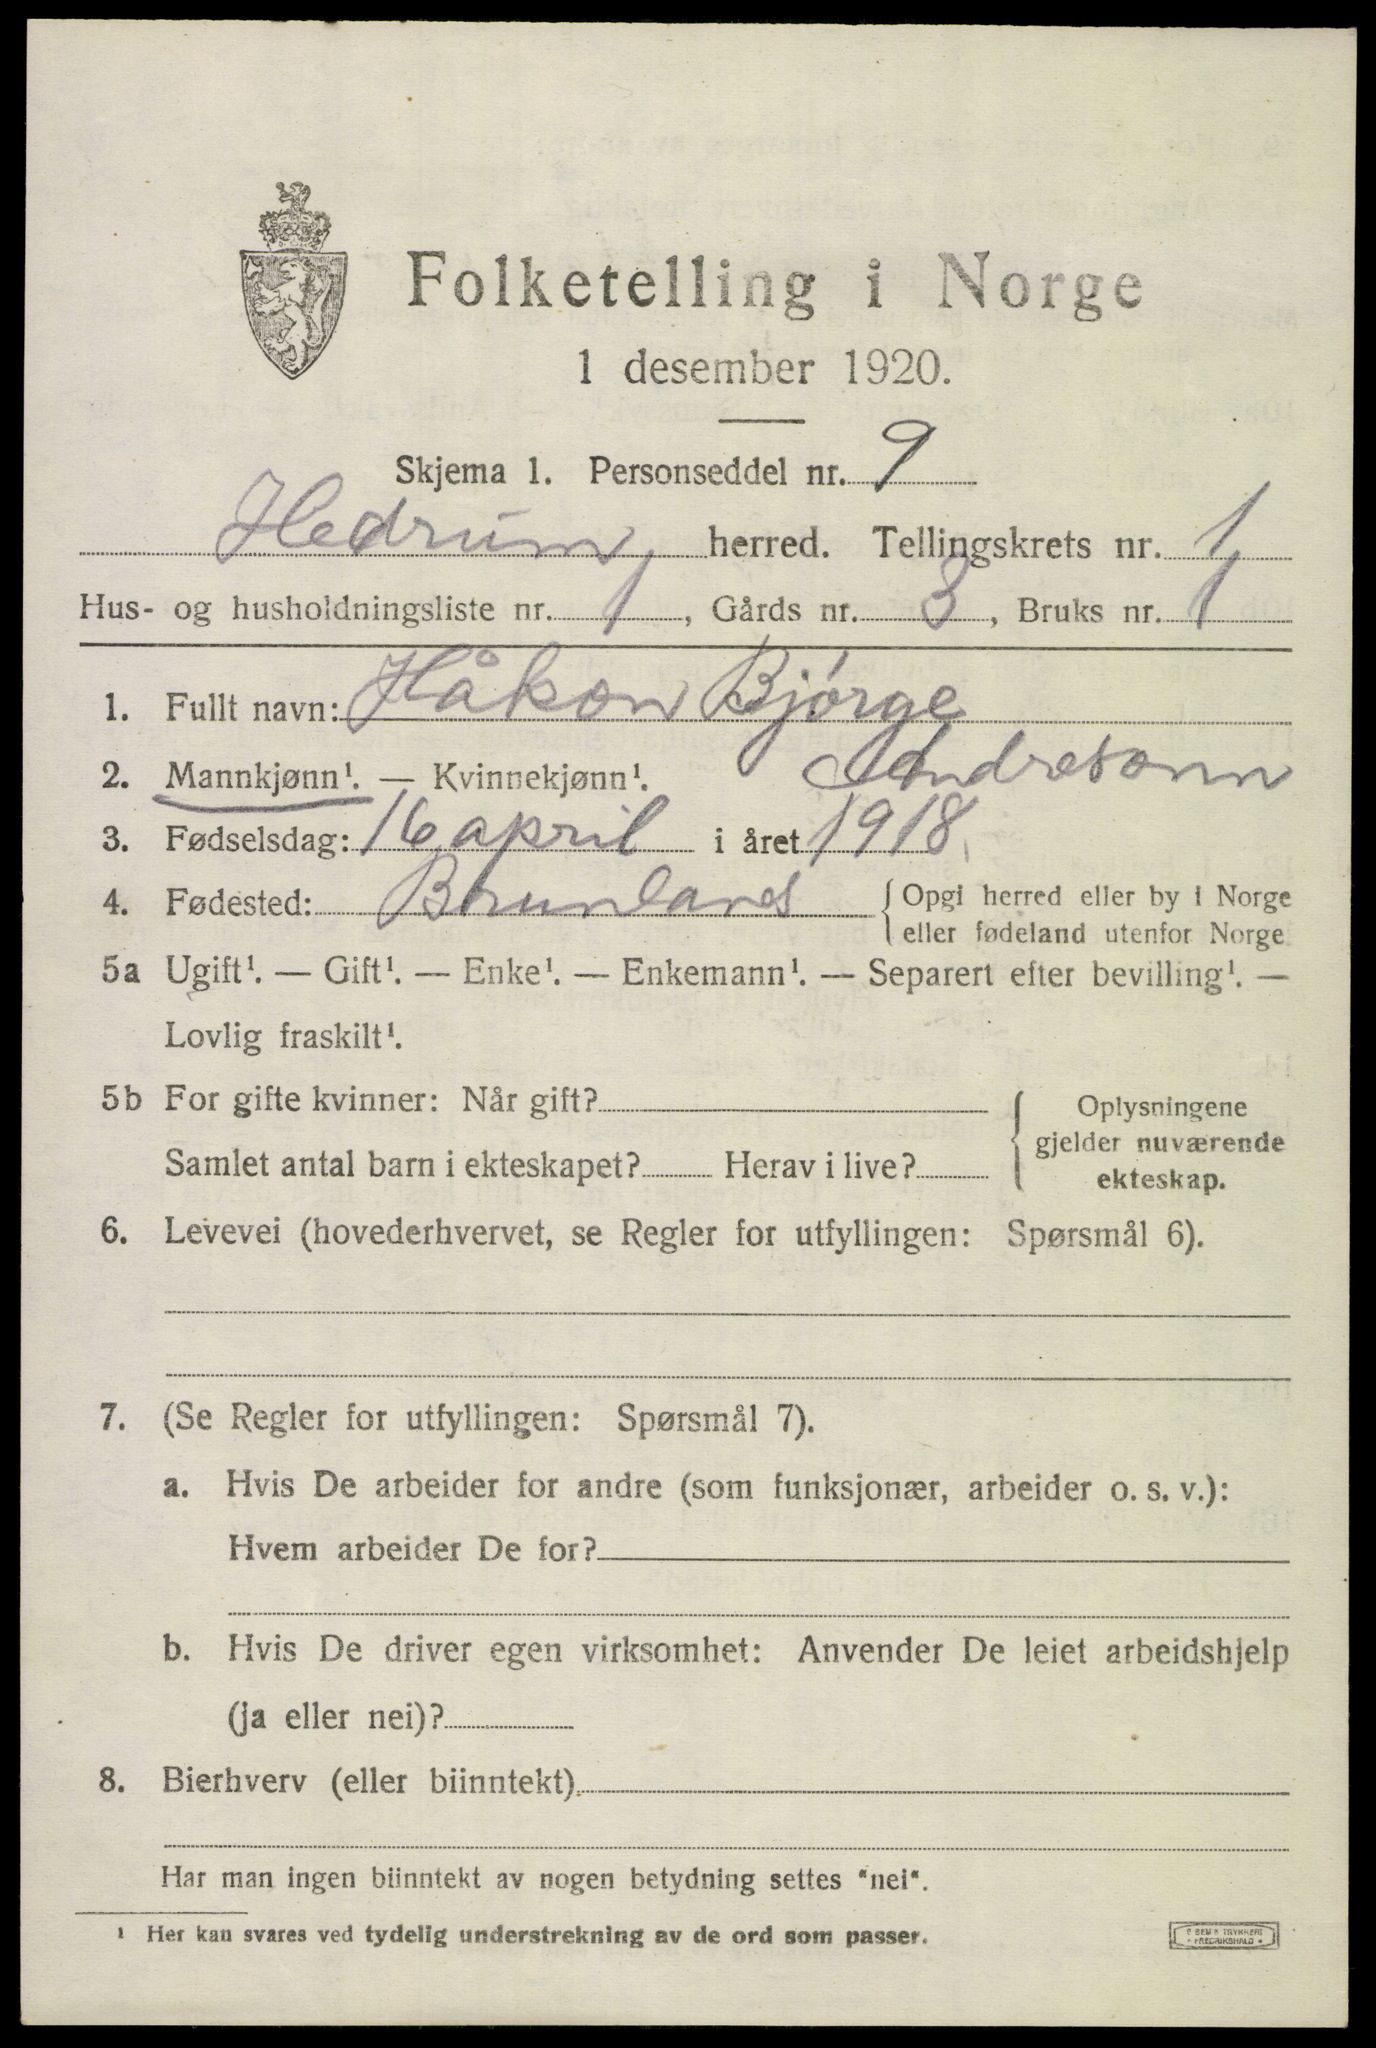 Folketelling i Norge
1 desember 1920.
Skjema 1. Personseddel nr. 9
Hedrum herred. Tellingskrets nr. 1
Hus- og husholdningsliste nr. 1, Gårds nr. 3, Bruks nr. 1
1. Fullt navn: Håkon Bjørge
Andresonn
2. Mannkjønn¹. — Kvinnekjønn¹.
3. Fødselsdag: 16 april i året 1918.
4. Fødested: Brunlanes { Opgi herred eller by i Norge
eller fødeland utenfor Norge
5a Ugift¹. — Gift¹. — Enke¹. — Enkemann¹. — Separert efter bevilling¹. —
Lovlig fraskilt¹.
5b For gifte kvinner: Når gift? { Oplysningene
gjelder nuværende
Samlet antal barn i ekteskapet? Herav i live? ekteskap.
6. Levevei (hovederhvervet, se Regler for utfyllingen: Spørsmål 6).
7. (Se Regler for utfyllingen: Spørsmål 7).
a. Hvis De arbeider for andre (som funksjonær, arbeider o. s. v.):
Hvem arbeider De for?
b. Hvis De driver egen virksomhet: Anvender De leiet arbeidshjelp
(ja eller nei)?
8. Bierhverv (eller biinntekt)
Har man ingen biinntekt av nogen betydning settes "nei".
¹ Her kan svares ved tydelig understrekning av de ord som passer.
TRYKKERI
FREDRIKSHALD